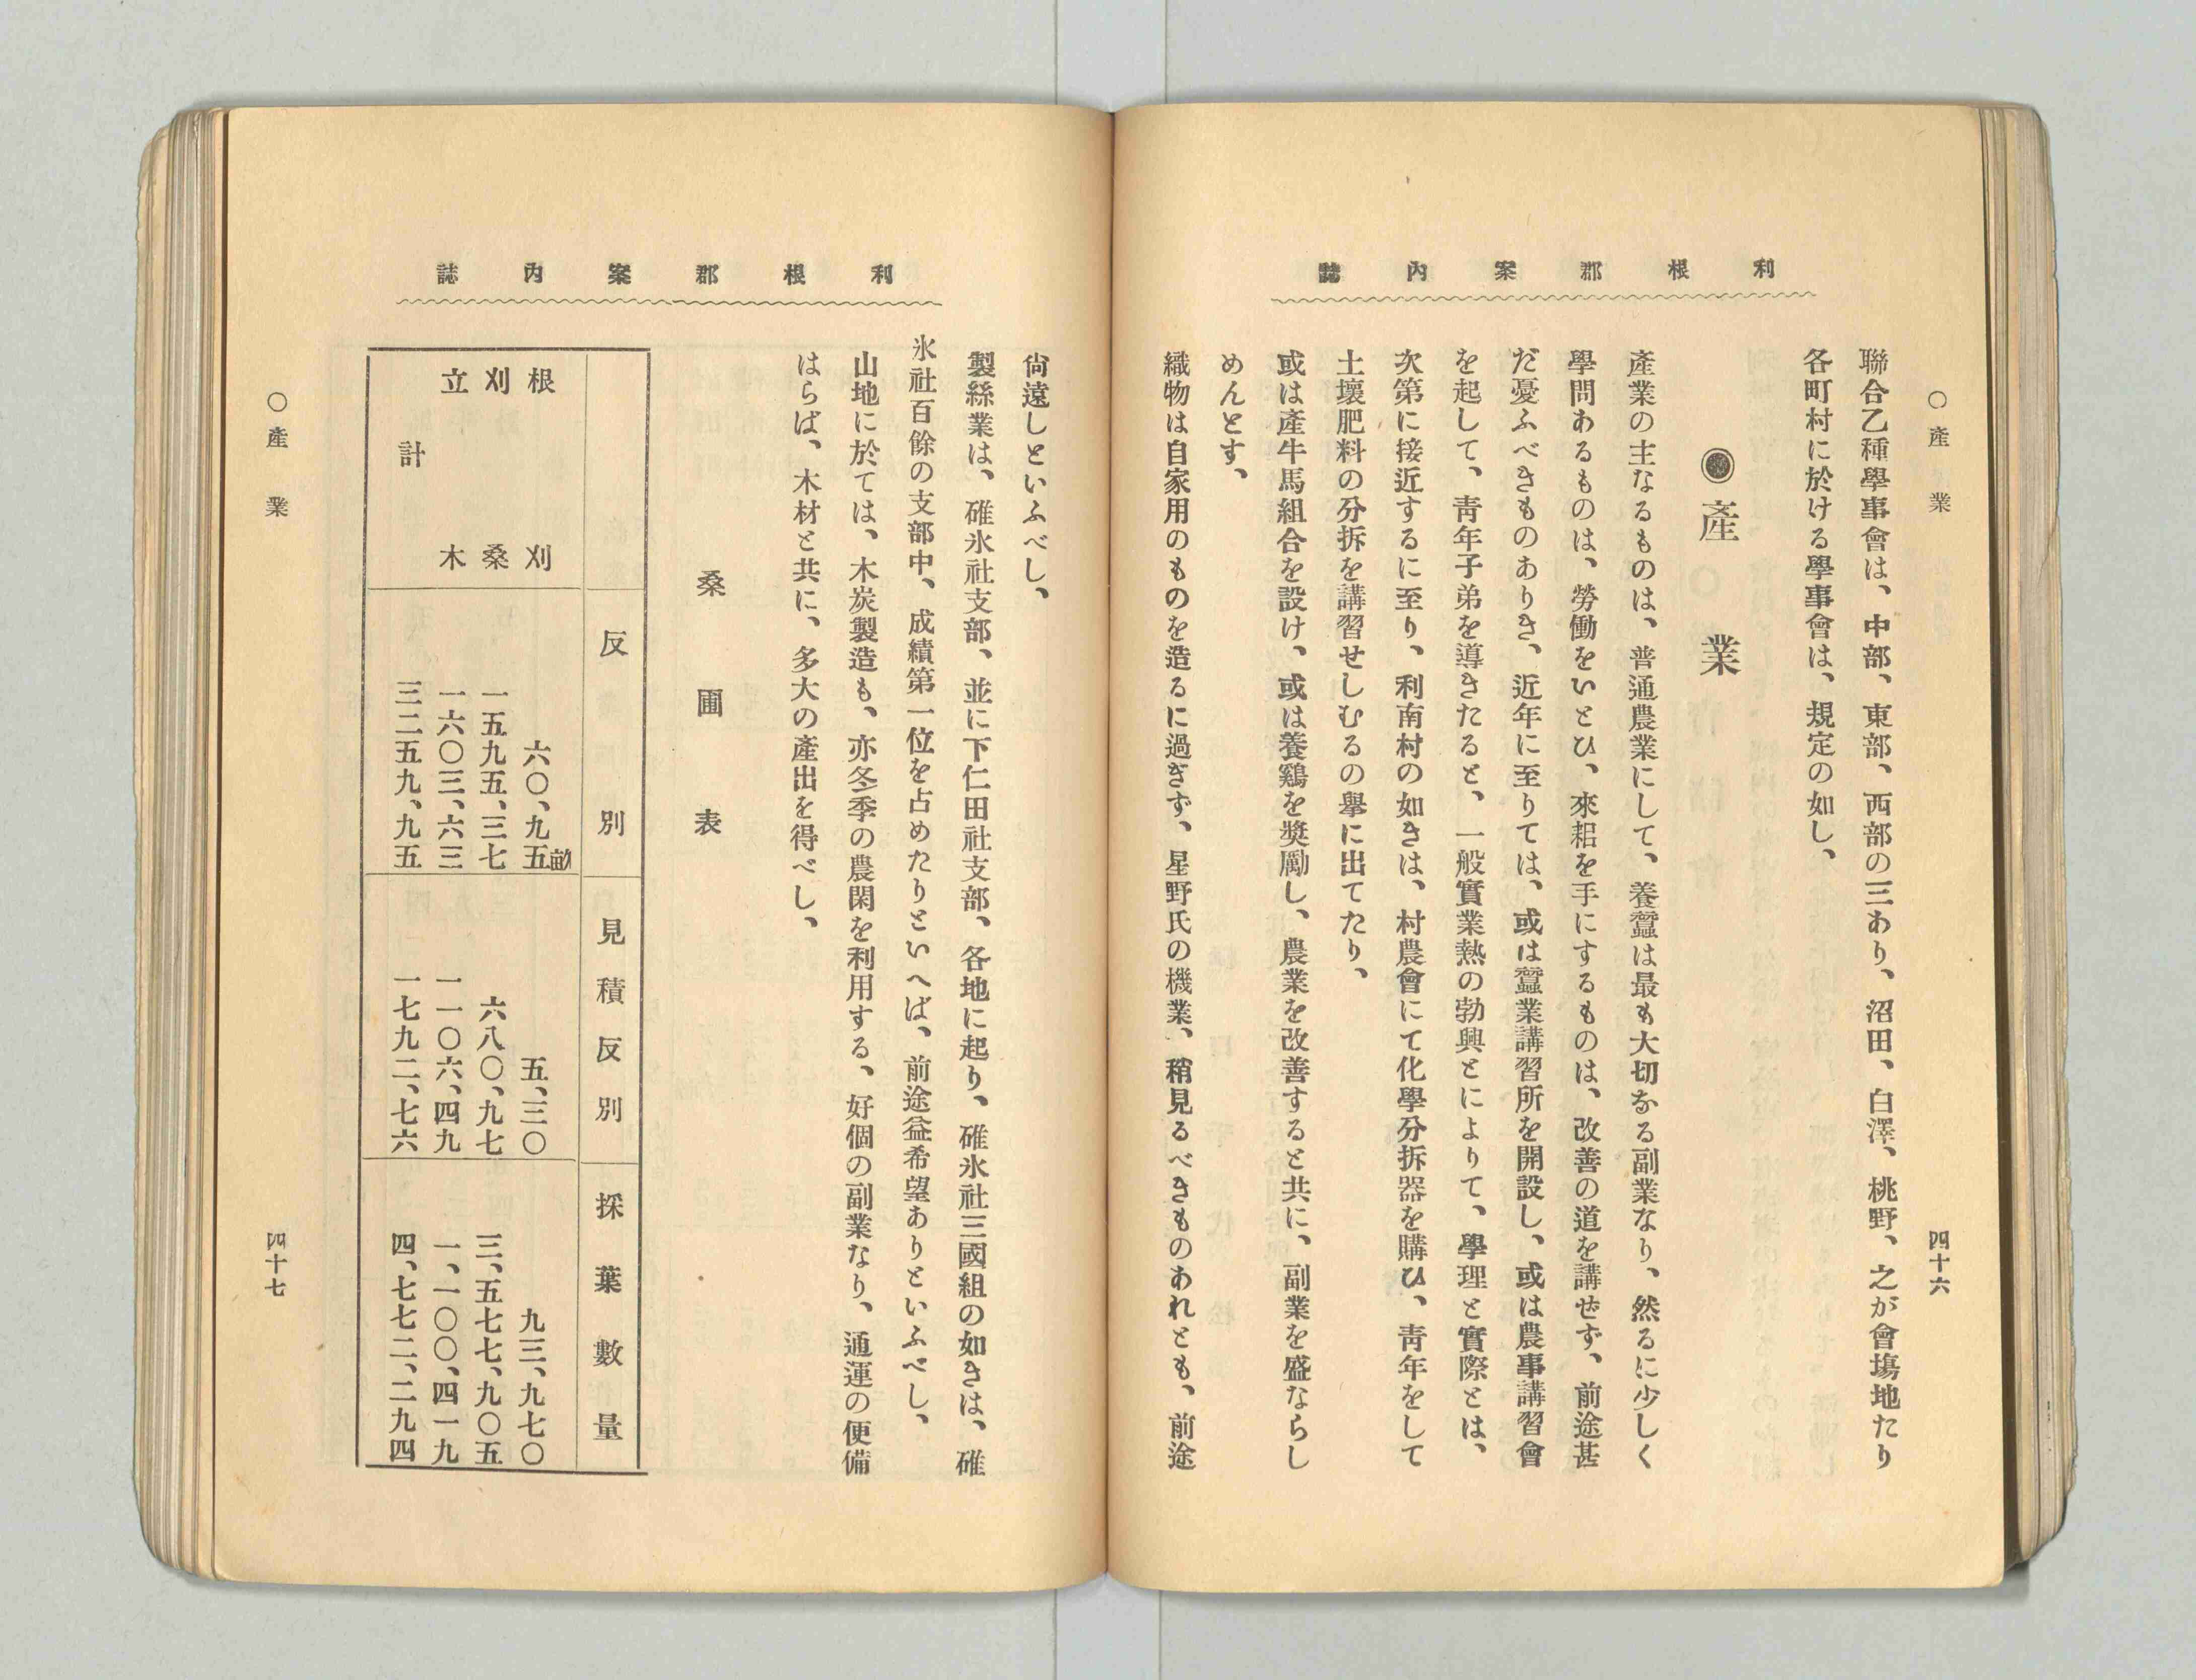 利根郡案内誌
○產業
四十六
聯合乙種學事會は、中部、東部、西部の三あり、沼田、白澤、桃野、之が會塲地たり
各町村に於ける學事會は、規定の如し、
◉產業
產業の主なるものは、普通農業にして、養蠶は最も大切なる副業なり、然るに少しく
學問あるものは、勞働をいとひ、來耜を手にするものは、改善の道を講せず、前途甚
だ憂ふべきものありき、近年に至りては、或は蠶業講習所を開設し、或は農事講習會
を起して、靑年子弟を導きたると、一般實業熱の勃興とによりて、學理と實際とは、
次第に接近するに至り、利南村の如きは、村農會にて化學分拆器を購ひ、靑年をして
土壤肥料の分拆を講習せしむるの擧に出てたり、
或は產牛馬組合を設け、或は養鷄を奬勵し、農業を改善すると共に、副業を盛ならし
めんとす、
織物は自家用のものを造るに過ぎず、星野氏の機業、稍見るべきものあれとも、前途
利根郡案内誌
尙遠しといふべし、
製絲業は、碓氷社支部、並に下仁田社支部、各地に起り、碓氷社三國組の如きは、碓
氷社百餘の支部中、成績第一位を占めたりといへば、前途益希望ありといふべし、
山地に於ては、木炭製造も、亦冬季の農閑を利用する、好個の副業なり、通運の便備
はらば、木材と共に、多大の產出を得べし、
桑圃表
反別 見積反別 採葉數量
根刈 六〇、九五畝 五、三〇 九三、九七〇
刈桑 一五九五、三七 六八〇、九七 三、五七七、九〇五
立木 一六〇三、六三 一一〇六、四九 一、一〇〇、四一九
計 三二五九、九五 一七九二、七六 四、七七二、二九四
○產業
四十七